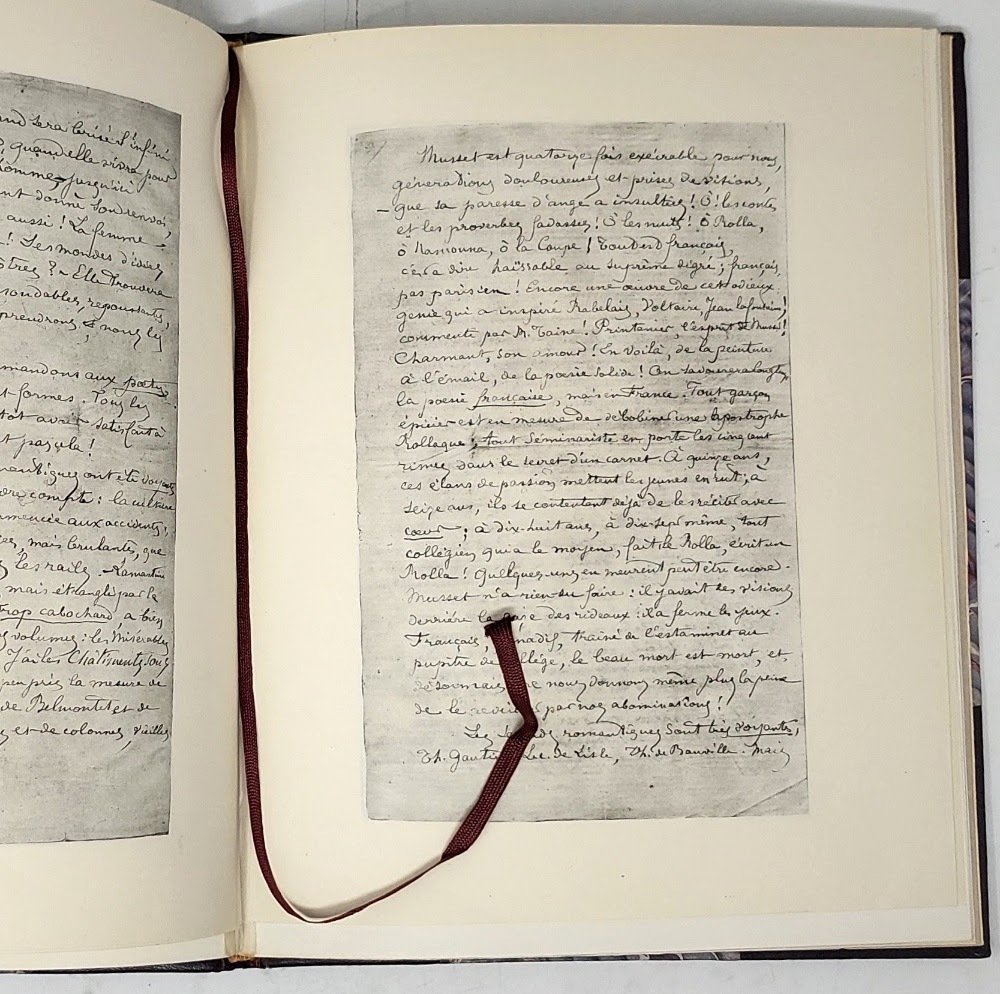 and sera brisé l'infini
, quand elle vivra pour
homme, jusqu'ici
ant donné son renvoi,
aussi! La femme
! Ses mondes d'idées
ôtres? - Elle trouvera
sondables, repoussantes,
prendrons, nous les
mandons aux poètes
et formes. Tous les
tôt avoir satisfait à
t pas cela!
mantiques ont été voyants
dre compte: la culture
mmencée aux accidents;
ées, mais brulantes, que
les rails. Lamartine
mais étranglé par la
trop cabochard a bien
s volumes: les Misérables
J'ai les Châtiments sous
peu près la mesure de
de Belmontet et de
s et de colonnes, vieilles
Musset est quatorze fois exécrable pour nous,
générations douloureuses et prises de visions,
– que sa paresse d'ange a insultées! Ô! les contes
et les proverbes fadasses! Ô les nuits! ô Rolla,
ô Namouna, ô la Coupe! Tout est français,
c'est à dire haïssable au suprême degré; français,
pas parisien! Encore une œuvre de cet odieux
génie qui a inspiré Rabelais, Voltaire, Jean lafontaine,!
commenté par M. Taine! Printanier, l'esprit de Musset!
Charmant, son amour! En voilà, de la peinture
à l'émail, de la poésie solide! On savourera longtps
la poésie française, mais en France. Tout garçon
épicier est en mesure de débobiner une apostrophe
Rollaque; tout séminariste en porte les cinq cent
rimes dans le secret d'un carnet. À quinze ans,
ces élans de passion mettent les jeunes en rut; à
seize ans, ils se contentent déjà de les réciter avec
cœur; à dix-huit ans, à dix-sept même, tout
collégien qui a le moyen, fait le Rolla, écrit un
Rolla! Quelques-uns en meurent peut être encore.
Musset n'a rien su faire: il y avait des visions
derrière la gaze des rideaux: il a fermé les yeux.
Français, traîné de l'estaminet au
pupitre de le beau mort est mort, et,
désormais, ne nous donnons même plus la peine
de le par nos abominations!
Les romantiques sont très voyants,
Th. Gautier Lec. de Lisle, Th. de Banville. Mais